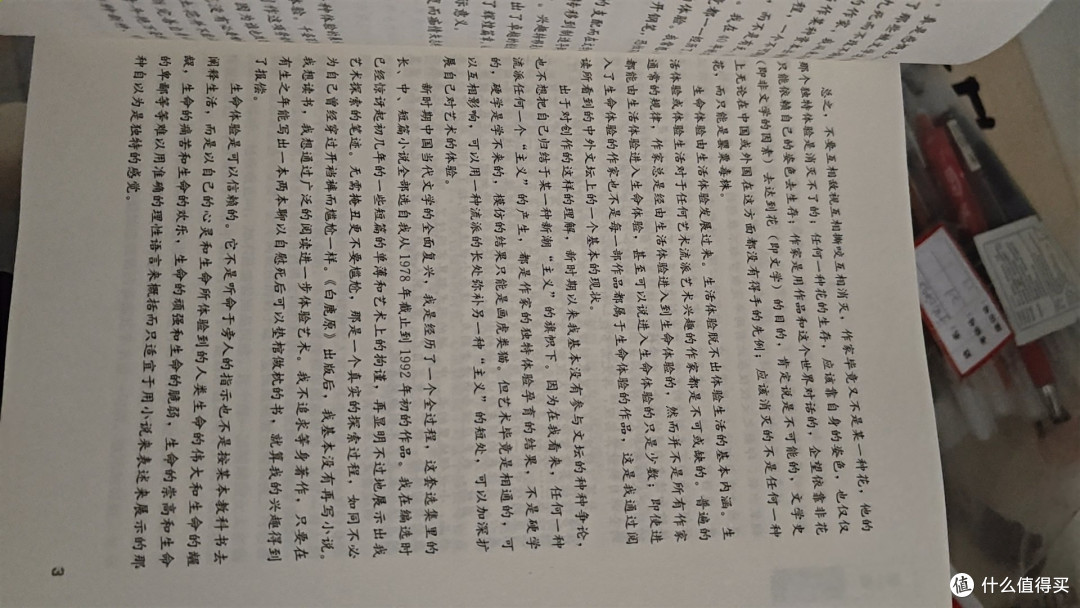 总之，不要互相敌视互相撕咬互相消灭。作家毕竟又不是某一种花，他的
那个独特体验是消灭不了的；任何一种花的生存，应该靠自身的姿色，也仅仅
只能依赖自己的姿色去生存；作家是用作品和这个世界对话的，企望依靠非花
（即非文学的因素）去达到花（即文学）的目的，肯定说是不可能的，文学史
上无论在中国或外国在这方面都没有得手的先例；应该消灭的不是任何一种
花，而只能是罂粟毒株。
生命体验由生活体验发展过来。生活体验脱不出体验生活的基本内涵。生
活体验或体验生活对于任何艺术流派艺术兴趣的作家都是不可或缺的。普遍的
通常的规律，作家总是经由生活体验进入到生命体验的，然而并不是所有作家
都能由生活体验进入生命体验，甚至可以说进入生命体验的只是少数；即使进
入了生命体验的作家也不是每一部作品都属于生命体验的作品，这是我通过阅
读所看到的中外文坛上的一个基本的现状。
出于对创作的这样的理解，新时期以来我基本没有参与文坛的种种争论，
也不想把自己归结于某一种新潮“主义”的旗帜下。因为在我看来，任何一种
流派任何一个“主义”的产生，都是作家的独特体验孕育的结果，不是硬学
的，硬学是学不来的，模仿的结果只能是画虎类猫。但艺术毕竟是相通的，可
以互相影响，可以用一种流派的长处弥补另一种“主义”的短处，可以加深扩
展自己对艺术的体验。
新时期中国当代文学的全面复兴，我是经历了一个全过程，这套选集里的
长、中、短篇小说全部选自我从1978年截止到1992年初的作品。我在编选时
已经惊讶起初几年的一些短篇的单薄和艺术上的拘谨，再显明不过地展示出我
艺术探索的笔迹。无需掩丑更不要尴尬，那是一个真实的探索过程，如同不必
为自己曾经穿过开裆裤而尴尬一样。《白鹿原》出版后，我基本没有再写小说。
我想读书，我想通过广泛的阅读进一步体验艺术。我不追求等身著作，只要在
有生之年能写出一本两本聊以自慰死后可以垫棺做枕的书，就算我的兴趣得到
了报偿。
生命体验是可以信赖的。它不是听命于旁人的指示也不是按某本教科书去
阐释生活，而是以自己的心灵和生命所体验到的人类生命的伟大和生命的龌
龊，生命的痛苦和生命的欢乐，生命的顽强和生命的脆弱，生命的崇高和生命
的卑鄙等等难以用准确的理性语言来概括而只适宜于用小说来表述来展示的那
种自以为是独特的感觉。
3
值 什么值得买